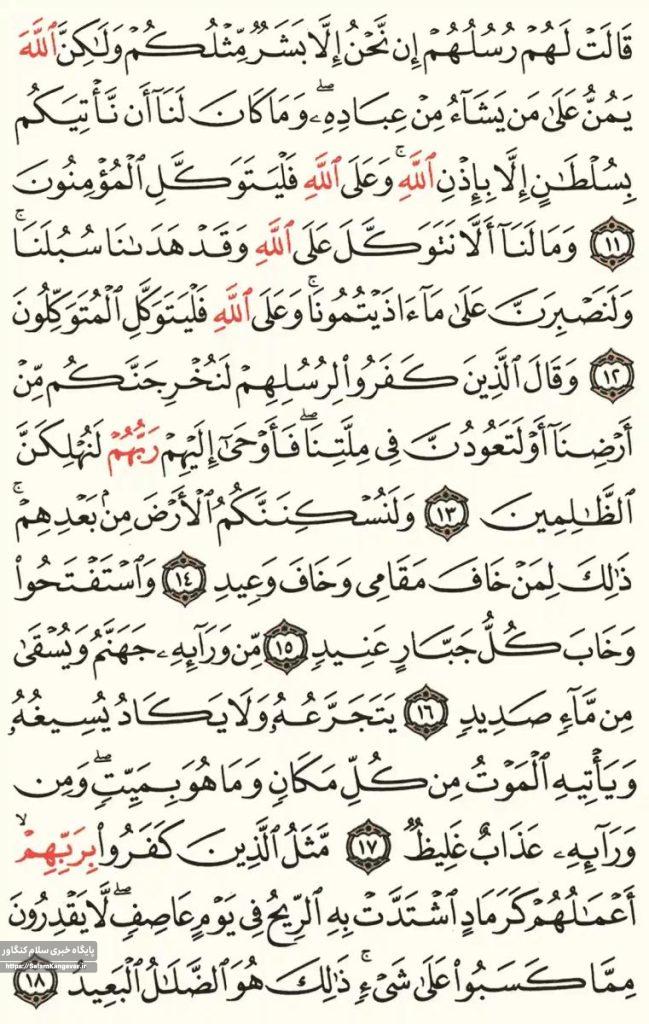 قَالَتْ لَهُمْ رُسُلُهُمْ إِن نَّحْنُ إِلَّا بَشَرٌ مِّثْلُكُمْ وَلَٰكِنَّ ٱللَّهَ
يَمُنُّ عَلَىٰ مَن يَشَآءُ مِنْ عِبَادِهِۦ ۖ وَمَا كَانَ لَنَآ أَن نَّأْتِيَكُم
بِسُلْطَٰنٍ إِلَّا بِإِذْنِ ٱللَّهِ ۚ وَعَلَى ٱللَّهِ فَلْيَتَوَكَّلِ ٱلْمُؤْمِنُونَ
١١ وَمَا لَنَآ أَلَّا نَتَوَكَّلَ عَلَى ٱللَّهِ وَقَدْ هَدَىٰنَا سُبُلَنَا ۚ
وَلَنَصْبِرَنَّ عَلَىٰ مَآ ءَاذَيْتُمُونَا ۚ وَعَلَى ٱللَّهِ فَلْيَتَوَكَّلِ ٱلْمُتَوَكِّلُونَ
١٢ وَقَالَ ٱلَّذِينَ كَفَرُوا۟ لِرُسُلِهِمْ لَنُخْرِجَنَّكُم مِّنْ
أَرْضِنَآ أَوْ لَتَعُودُنَّ فِى مِلَّتِنَا ۖ فَأَوْحَىٰٓ إِلَيْهِمْ رَبُّهُمْ لَنُهْلِكَنَّ
ٱلظَّٰلِمِينَ ١٣ وَلَنُسْكِنَنَّكُمُ ٱلْأَرْضَ مِنۢ بَعْدِهِمْ ۚ
ذَٰلِكَ لِمَنْ خَافَ مَقَامِى وَخَافَ وَعِيدِ ١٤ وَٱسْتَفْتَحُوا۟
وَخَابَ كُلُّ جَبَّارٍ عَنِيدٍ ١٥ مِّن وَرَآئِهِۦ جَهَنَّمُ وَيُسْقَىٰ
مِن مَّآءٍ صَدِيدٍ ١٦ يَتَجَرَّعُهُۥ وَلَا يَكَادُ يُسِيغُهُۥ
وَيَأْتِيهِ ٱلْمَوْتُ مِن كُلِّ مَكَانٍ وَمَا هُوَ بِمَيِّتٍ ۖ وَمِن
وَرَآئِهِۦ عَذَابٌ غَلِيظٌ ١٧ مَّثَلُ ٱلَّذِينَ كَفَرُوا۟ بِرَبِّهِمْ ۖ
أَعْمَٰلُهُمْ كَرَمَادٍ ٱشْتَدَّتْ بِهِ ٱلرِّيحُ فِى يَوْمٍ عَاصِفٍ ۖ لَّا يَقْدِرُونَ
مِمَّا كَسَبُوا۟ عَلَىٰ شَىْءٍ ۚ ذَٰلِكَ هُوَ ٱلضَّلَٰلُ ٱلْبَعِيدُ ١٨
پایگاه خبری سلام کنگاور
https://SalamKangavar.ir